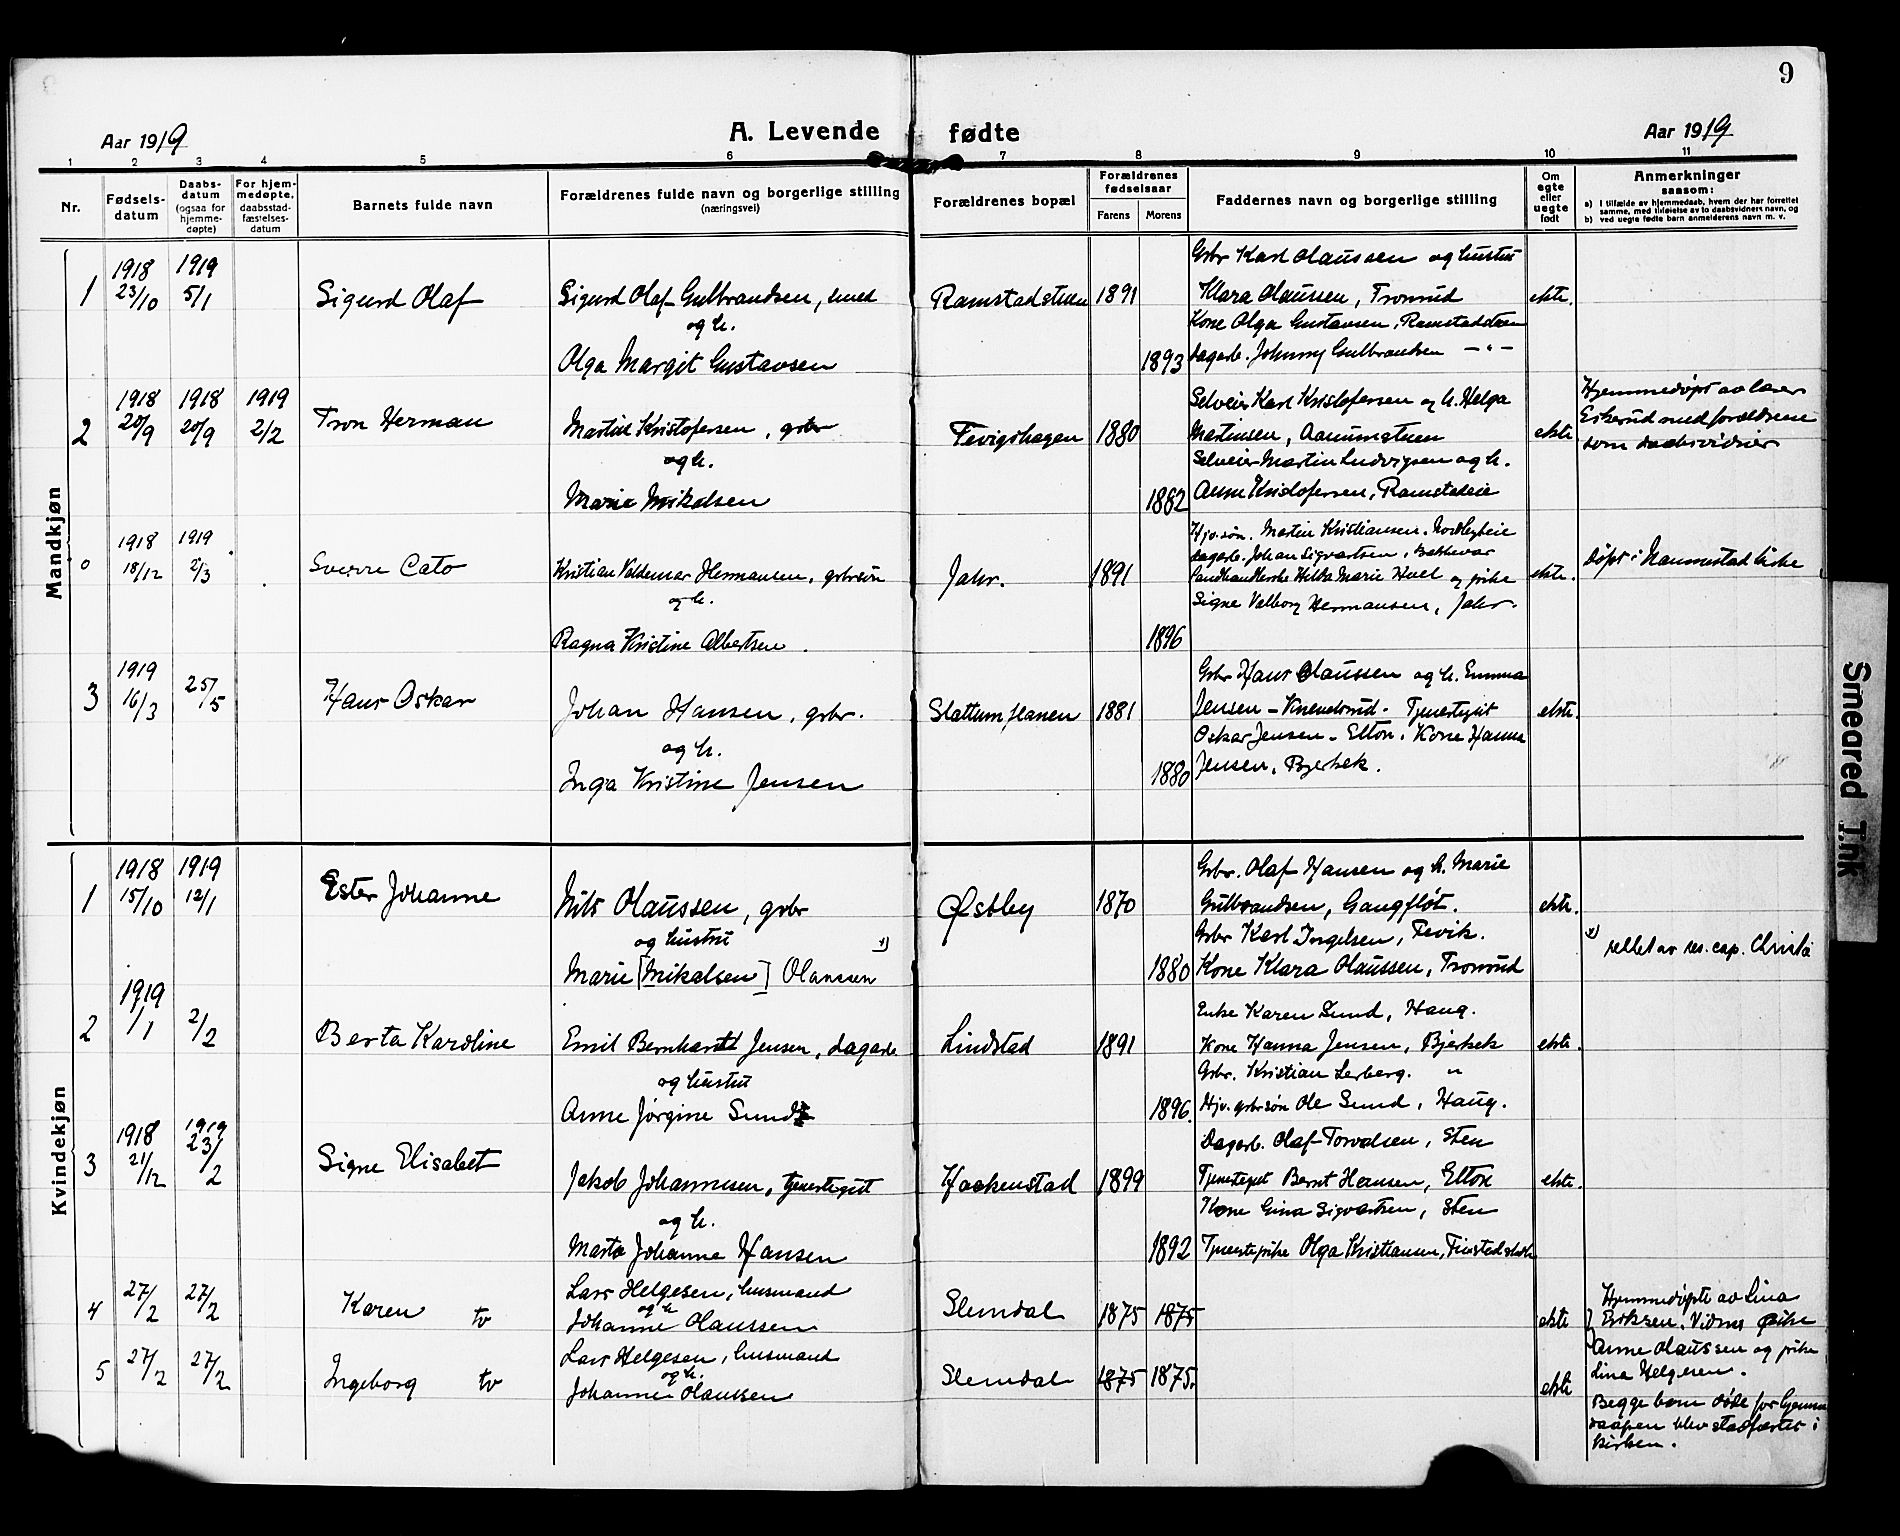 9
Aar 1919
A. Levende fødte
Aar 1919
1 2 3 4 5 6 7 8 9 10 11
Nr.
Fødsels-
datum
Daabs-
datum
(ogsaa for
hjemme-
døpte)
For hjem-
medøpte,
daabsstad-
fæstelses-
datum
Barnets fulde navn
Forældrenes fulde navn og borgerlige stilling
(næringsvei)
Forældrenes bopæl
Forældrenes
fødselsaar
Farens Morens
Faddernes navn og borgerlige stilling
Om
egte
eller
uegte
født
Anmerkninger
saasom:
a) I tilfælde av hjemmedaab, hvem der har forrettet
samme, med tilføielse av to daabsvidners navn, og
b) ved uegte fødte barn anmelderens navn m. v.
Mandkjøn
1
1918
23/10
1919
5/1
Sigurd Olaf
Sigurd Olaf Gulbrandsen, smed
og h.
Olga Margit Gustavsen
Ramstadstuen
1891
1893
Grbr Karl Olaussen og hustru
Klara Olaussen, Tronrud
Kone Olga Gustavsen, Ramstadstuen
Dagarb. Johnny Gulbrandsen — " —
ekte.
2
1918
20/9
1918
20/9
1919
2/2
Tron Herman
Martin Kristofersen, grbr
og h.
Marie Mikalsen
Tevigshagen
1880
1882
Selveier Karl Kristofersen og h. Helga
Martinsen, Aanumstuen
Selveier Martin Ludvigsen og h.
Anne Kristofersen, Ramstadeie
ekte
Hjemmedøpt av lærer
Eskerud med forældrene
som daabsvidner
0
1918
18/12
1919
2/3
Sverre Cato
Kristian Valdemar Hermansen, grbrsøn
og h.
Ragna Kristine Albertsen.
Jahr.
1891
1896
Hjv. søn. Martin Kristiansen, Nordbyeie
Dagarb. Johan Sigvartsen, Bakkevar
Landhandlerske Hilda Marie Hoel og pike
Signe Valborg Hermansen, Jahr.
ekte.
Døpt i Nannestad kirke
3
1919
16/3
25/5
Hans Oskar
Johan Hansen, grbr.
og h.
Inga Kristine Jensen
Slattumshagen
1881
1880
Grbr Hans Olaussen og h. Emma
Jensen – Knevelsrud. Tjenestegut
Oskar Jensen – Elton. Kone Hanna
Jensen, Bjerkek.
ekte.
Kvindekjøn
1
1918
15/10
1919
12/1
Ester Johanne
Nils Olaussen, grbr
og hustru
Marie [Mikalsen] Olaussen x)
Østby
1870
1880
Grbr. Olaf Hansen og h. Marie
Gulbrandsen, Gangfløt.
Grbr Karl Ingelsen, Tevik.
Kone Klara Olaussen, Tronrud
ekte.
x) rettet av res. cap. Christie
2
1919
/1
2/2
Berta Karoline
Emil Bernhardt Jensen, dagarb.
og hustru
Anne Jørgine Sund
Lindstad
1891
1896.
Enke Karen Sund, Haug.
Kone Hanna Jensen, Bjerkek
Grbr. Kristian Lerberg. "
Hjv. grbrsøn Ole Sund, Haug.
ekte.
3
1918
21/12
1919
23/2
Signe Elisabet
Jakob Johannesen, tjenestegut
og h.
Marta Johanne Hansen
Hockenstad
1899
1892
Dagarb. Olaf Torvalsen, Sten
Tjenestegut Bernt Hansen, Elton
Kone Gina Sigvartsen, Sten
Tjenestepike Olga Kristiansen, Finstad
ekte.
4
27/2
27/2
Karen tv
Lars Helgesen, husmand
og h
Johanne Olaussen
Slemdal
1875 1875
ekte
5
27/2
27/2
Ingeborg tv
Lars Helgesen, husmand
og h.
Johanne Olaussen
Slemdal
1875 1875.
ekte
Hjemmedøpte av Lina
Eriksen. Vidner pike
Anne Olaussen og pike
Lina Helgesen.
Begge barn døde før hjemme
daapen blev stadfæstet i
kirken.
Smeared Ink